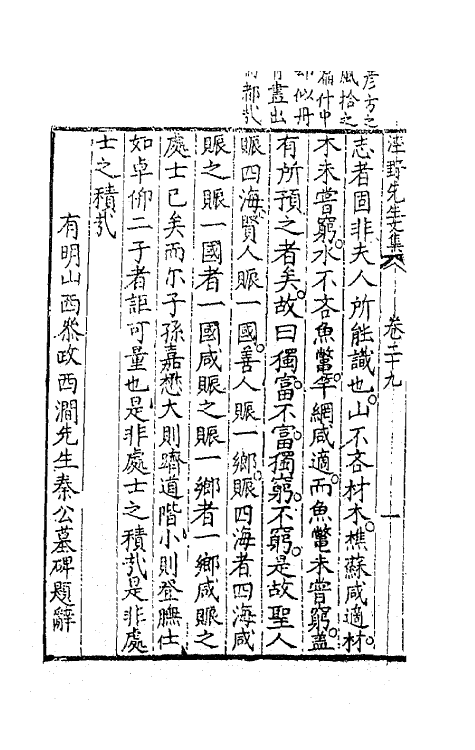 彦方之
風拾之
篇什中
却似丹
青畫出
涇野先生文集 卷二十九 一
志者固非夫人所能識也山不吝材木樵蘇咸適材
木未嘗窮水不吝魚鼈竿網咸適而魚鼈未嘗窮蓋
有所預之者矣故曰獨富不富獨窮不窮是故聖人
賑四海賢人賑一國善人賑一鄉賑四海者四海咸
賑之賑一國者一國咸賑之賑一鄉者一鄉咸賑之
處士已矣而尔子孫嘉懋大則躋道階小則登膴仕
如卓仰二子者詎可量也是非處士之積㢤是非處
士之積㢤
有明山西叅政西澗先生秦公墓碑題辭